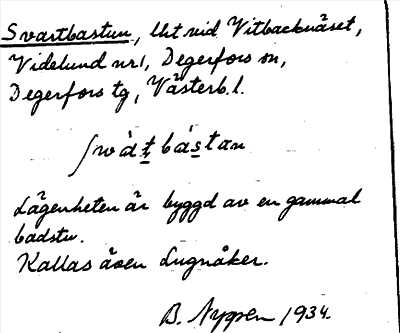 Svartbastun, lht vid Vitbacknäset,
Videlund nr 1, Degerfors sn,
Degerfors tg, Västerb. l.
ʃwȧt̲bás̲tan
Lägenheten är byggd av en gammal
badstu.
Kallas även Lugnåker.
B. Nygren 1934.